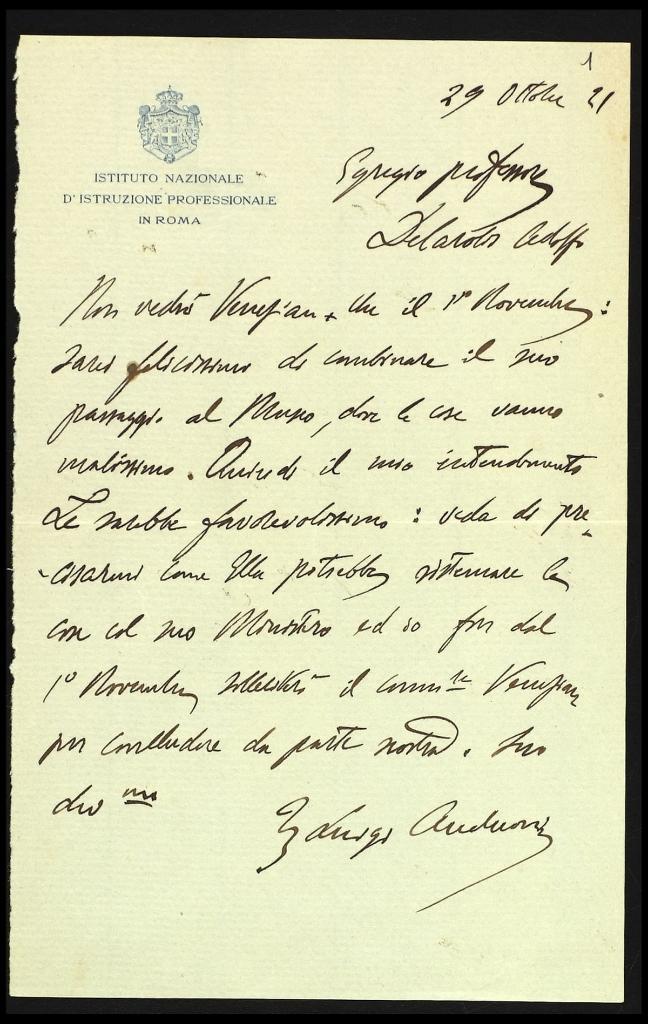 1
29 Ottobre 21
ISTITUTO NAZIONALE
D'ISTRUZIONE PROFESSIONALE
IN ROMA
Egregio professore
Decarolis Adolfo
Non vedrò Venezian che il 1° Novembre:
sarei felicissimo di combinare il suo
passaggio al Museo, dove le cose vanno
malissimo. Quindi il mio intendimento
Le sarebbe favorevolissimo: veda di pre-
cisarmi come Ella potrebbe sistemare la
cosa col suo Ministro ed io fin dal
1° Novembre solleciterò il comm.re Venezian
per concludere da parte nostra. Suo
dev mo
Luigi